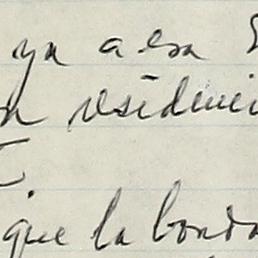 ya a esa
residenci
que la bonda